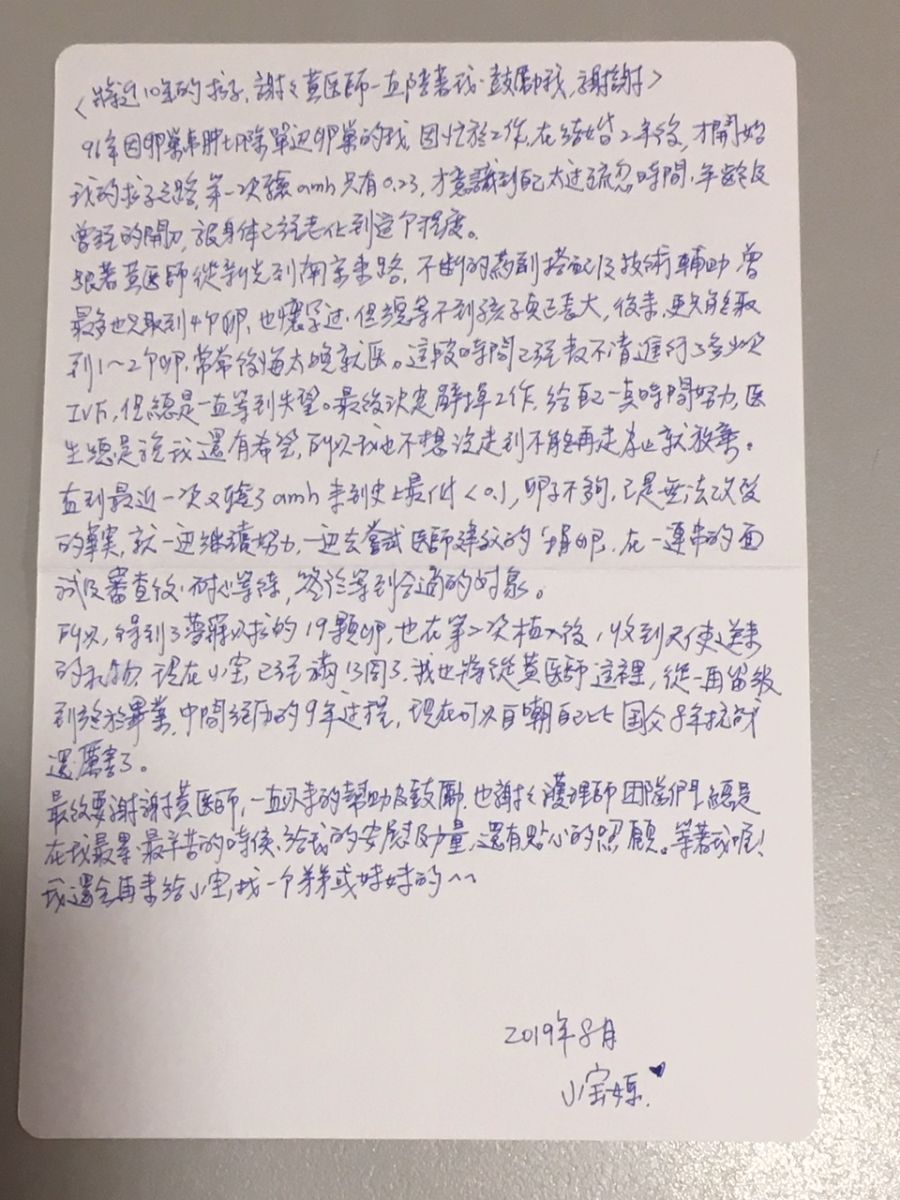 <將近10年的求子, 謝謝黃医師一直陪著我、鼓勵我, 謝謝>
91年因卵巢串肿切除單边卵巢的我, 因忙於工作, 在結婚2年後, 才開始
我的求子之路, 第一次驗amh只有0.23, 才意識到自己太过疏忽時間、年齡及
曾經的開刀, 讓身体已經老化到這个程度。
跟著黃医師從新光到南京東路, 不断的药劑搭配及技術輔助, 曾
最多也只取到4个卵, 也懷孕过, 但總等不到孩子真正長大, 後來, 更只能取
到1~2个卵, 常常後悔太晚就医。這段時間已經数不清進行了多少次
IVF, 但總是一直等到失望。最後決定辭掉工作, 給自己一点時間努力, 医
生總是說我還有希望, 所以我也不想沒走到不能再走為止就放棄。
直到最近一次又驗了amh來到史上最低<0.1, 卵子不夠, 已是無法改变
的事実, 就一边继續努力, 一边去嘗試医師建议的「捐卵」, 在一連串的面
試及審查後, 耐心等待, 終於等到合適的对象。
所以, 得到了夢寐以求的19顆卵, 也在第二次植入後, 收到天使送來
的礼物, 現在小宝已經滿13周了, 我也將從黃医師這裡, 從一再留級
到終於畢業, 中間經历的9年过程, 現在可以自嘲自己比国父8年抗战
還厲害了。
最後要謝謝黃医師, 一直以來的幫助及鼓勵, 也謝謝護理師団隊們, 總是
在我最累、最辛苦的時候, 給我的安慰及力量, 還有貼心的照顧。等著我喔!
我還会再來給小宝, 找一个弟弟或妹妹的~~
2019年8月
小宝媽.